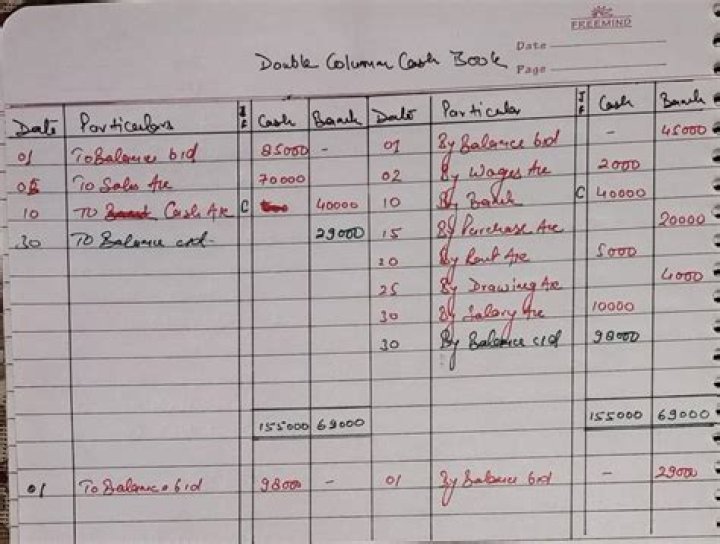 FREEMIND
Date
Page
Double Column Cash Book
Date Particulars J F Cash Bank Date Particular J F Cash Bank
01 To Balance b/d 85000 - 01 By Balance b/d - 45000
05 To Sales A/c 70000 02 By Wages A/c 2000
10 To Cash A/c C 40000 10 By Bank C 40000
30 To Balance c/d. 29000 15 By Purchase A/c 20000
20 By Rent A/c 5000
25 By Drawing A/c 4000
30 By Salary A/c 10000
30 By Balance c/d 98000
155000 69000 155000 69000
01 To Balance b/d 98000 - 01 By Balance b/d - 29000